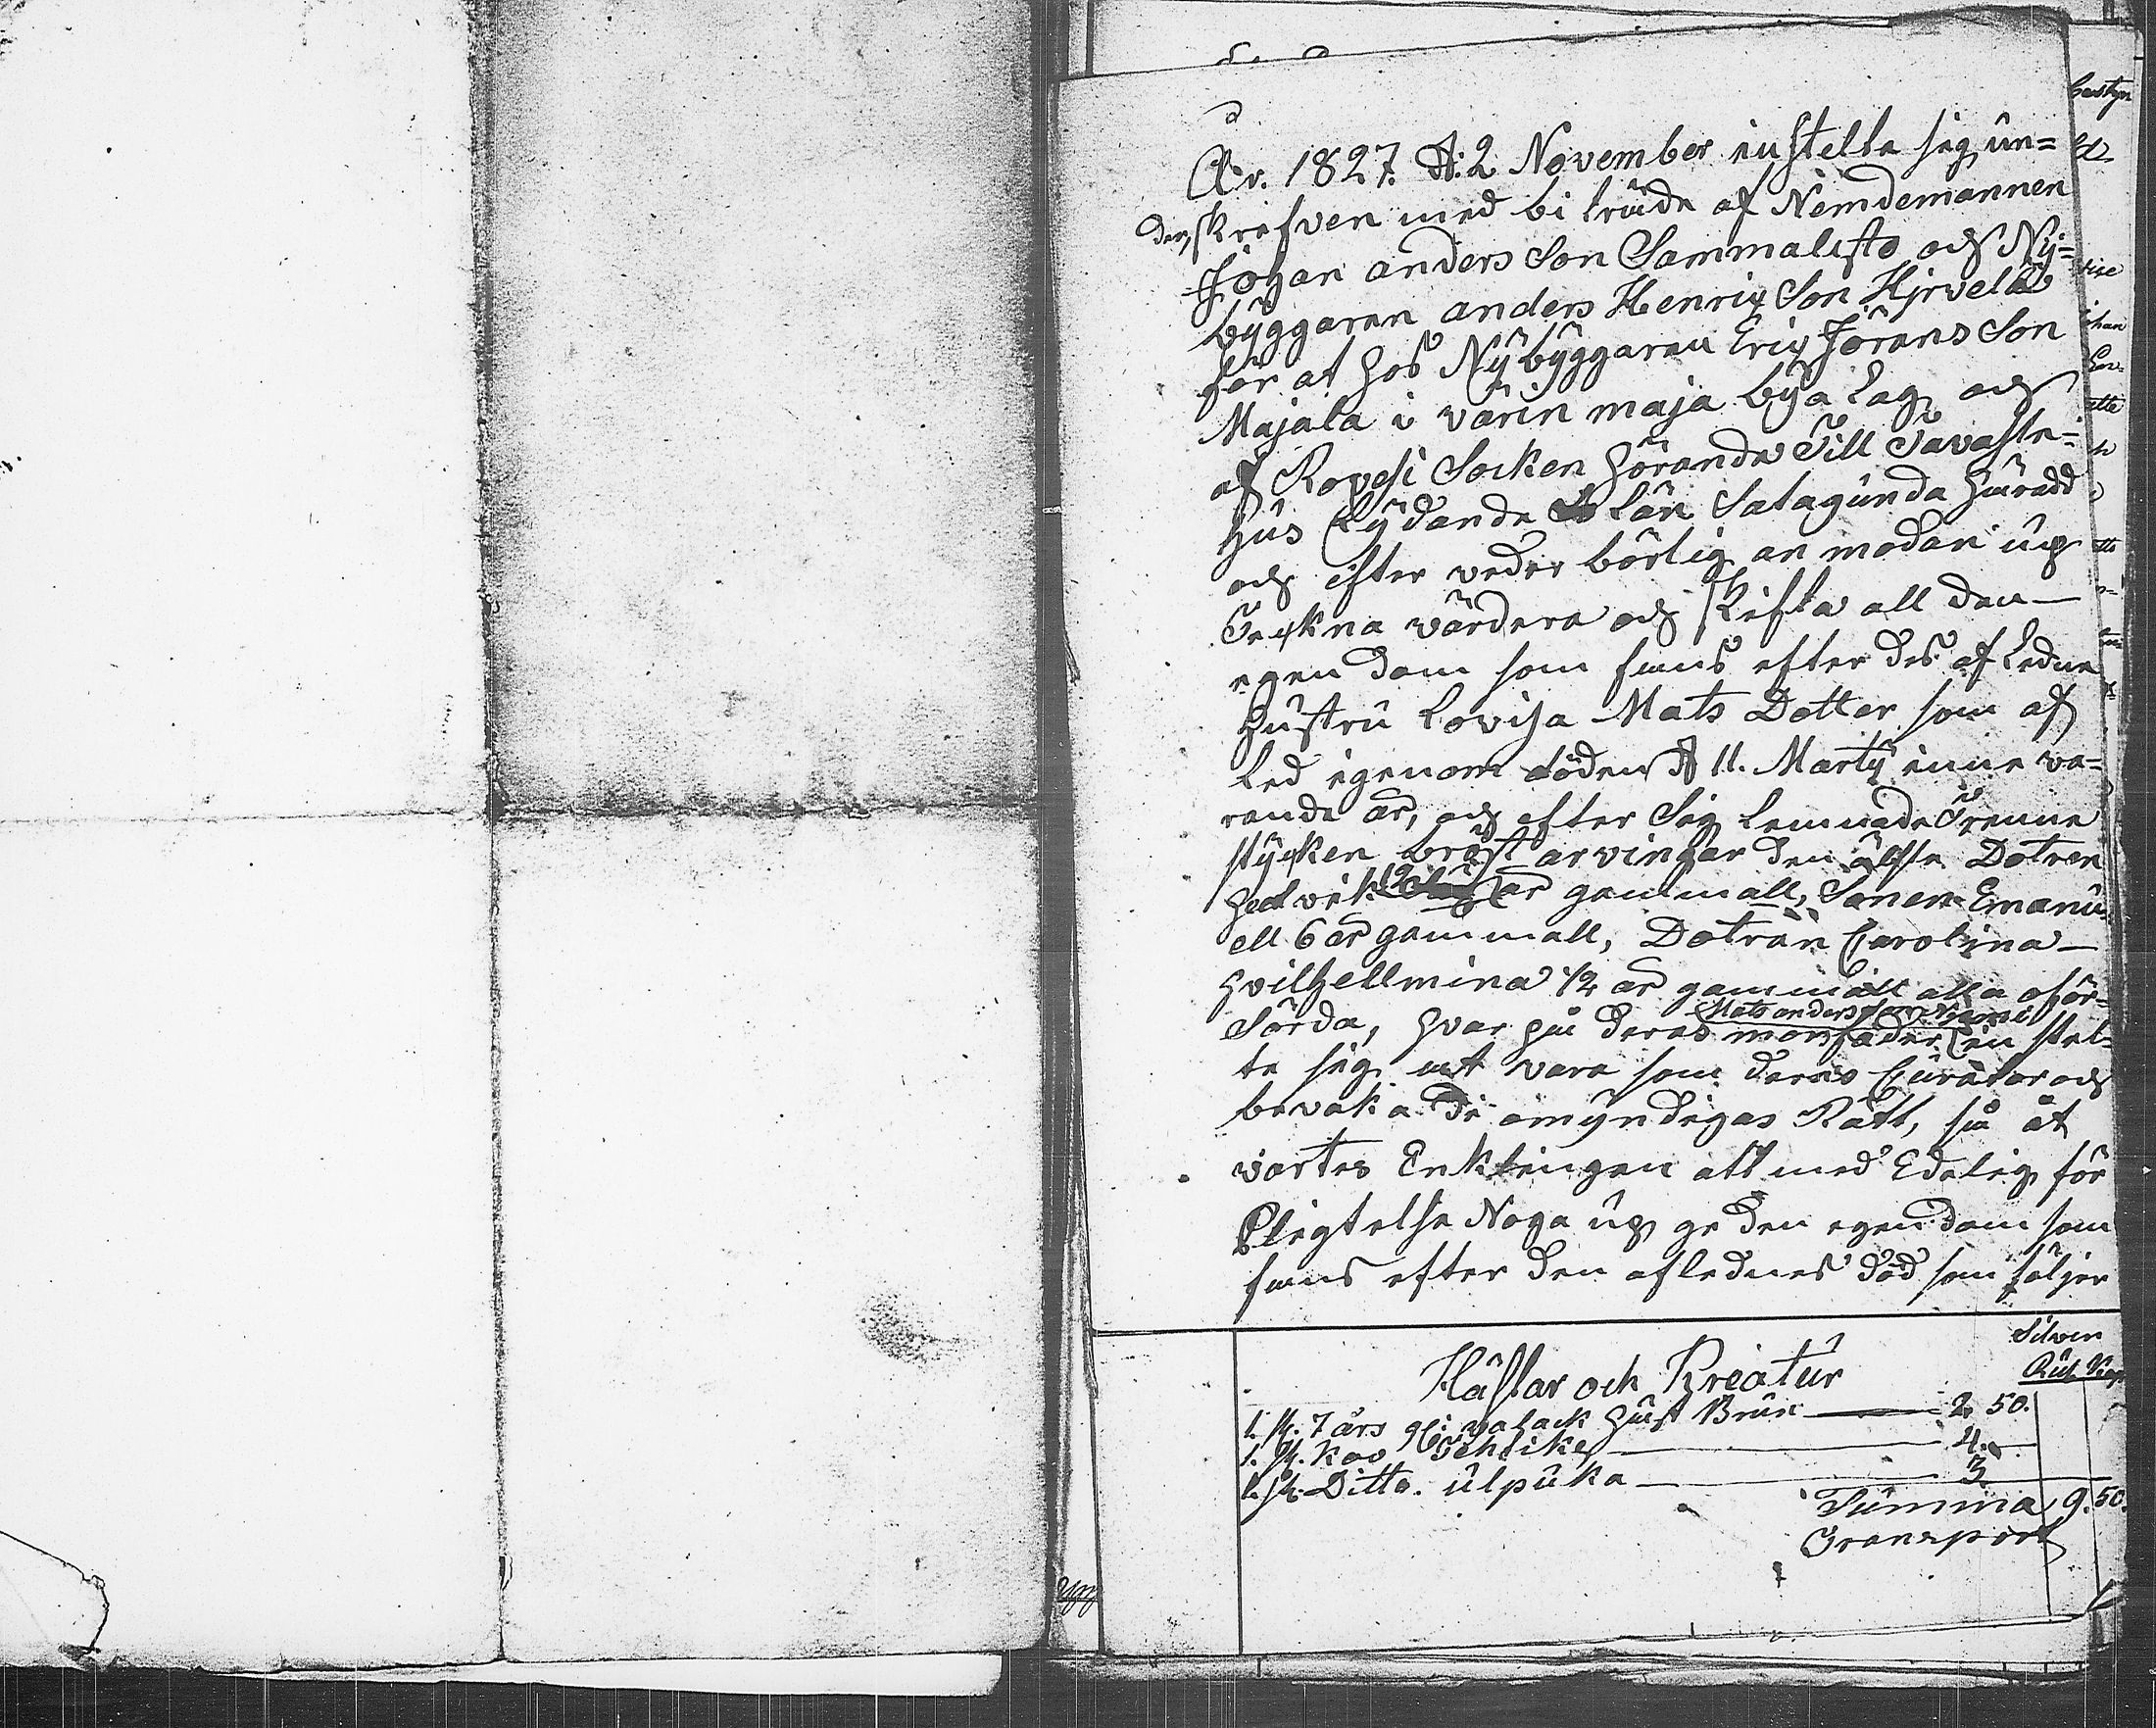 År. 1827. d: 2 November instelte sig un=
derskrefven med bi träde af Nemdemannen
Johan anders Son Sammalisto och Ny=
byggaren anders Henrix Son Hirvelä
för at hos Nybyggaren Erix Jörans Son
Majala i värin maja bya Lag och
af Rovesi Socken hörande Till Tavaste=
hus Lydande Län Satagunda härad
och efter veder börlig an modan up
Teckna värdera och skifta all den
egendom som fans efter des af Ledne
hustru Lovisa Mats Dotter som af
Led igenom döden d 11. Marty inne va=
rande år, och efter Sig Lemnade Trenne
stycken bröst arvingar den älste Dotren
hedvik 12 år gammall, Sonen Emanu
ell 6 år gammall, Dotran Carolina
hvilhellmina 1/2 år gammall alla oför=
Sörda, hvar på deras morfader in stel=
Mats anders Son Niemi
te sig att vara som deras Curator och
bevaka de omyndigas Rätt, så åt
vartes Enklingen att med Edelig för
Pligtelse Noga up ge den egendom som
fans efter den aflednes död som följer
Silver
Hästar och Kreatur
Rub. Kop
1. st. 7 års valack häst Brun 2 50.
1. st. Koo 4.
1. st. Ditto. ulpuka 3
Summa 9. 50.
Transport